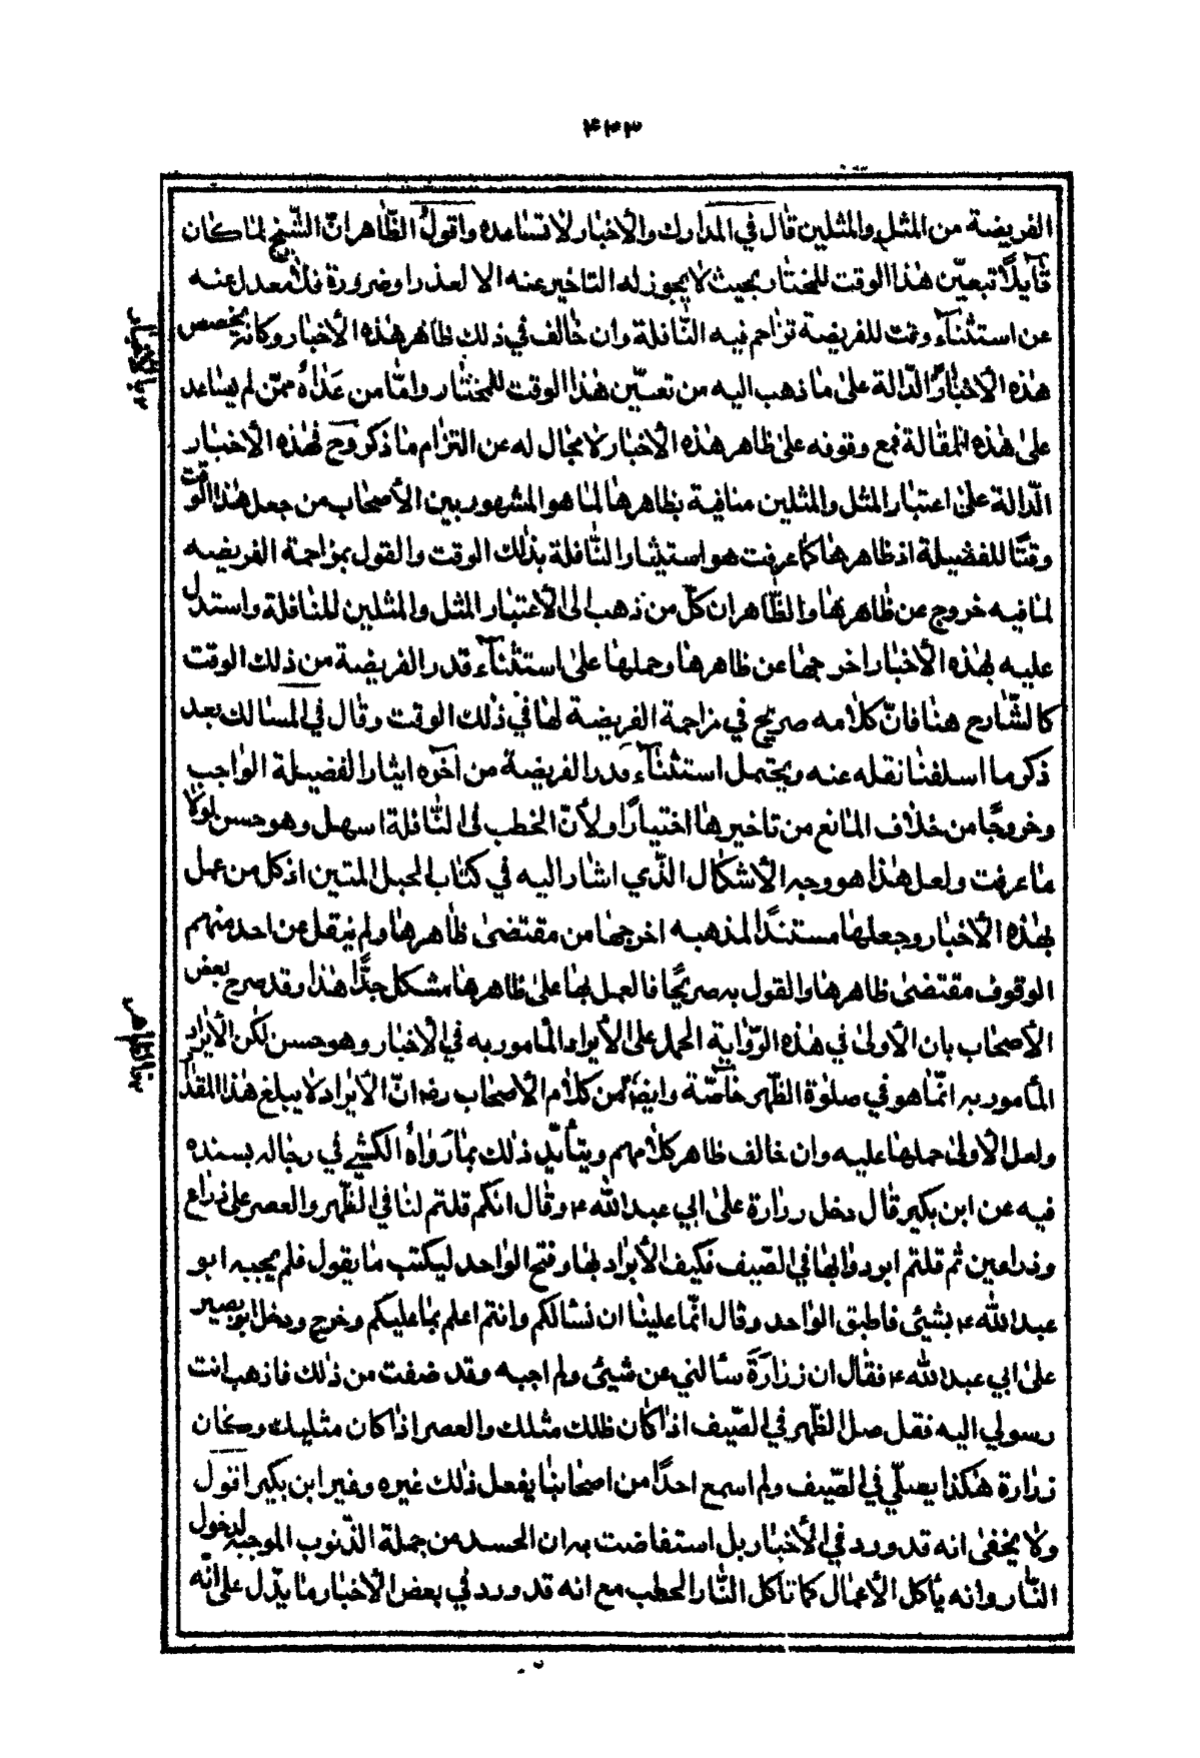 ٤٢٣
الفريضة من المثل والمثلين قال في المدارك والأخبار لا تساعده واقول الظاهر ان الشيخ لما كان
قآيلاً بتعيّن هذا الوقت للمختار بحيث لا يجوز له التاخير عنه الا لعذر او ضرورة فلا معدل عنه
عن استثنآء وقت للفريضة تزاحم فيه النّافلة وان خالف في ذلك ظاهر هذه الأخبار وكانه يخصص
هذه الأخبار الدّالة على ما ذهب اليه من تعيّين هذا الوقت للمختار وامّا من عداه ممّن لم يساعد
على هذه المقالة فمع وقوفه على ظاهر هذه الأخبار لا مجال له عن التزام ما ذكر وح فهذه الأخبار
الدّالة على اعتبار المثل والمثلين منافية بظاهرها لما هو المشهور بين الأصحاب من جعل هذا الوقت
وقتًا للفضيلة اذ ظاهرها كما عرفت هو استيثار النّافلة بذلك الوقت والقول بمزاحمة الفريضه
لها فيه خروج عن ظاهرها والظّاهر ان كلّ من ذهب الى الأعتبار المثل والمثلين للنافلة واستدل
عليه بهذه الأخبار اخرجها عن ظاهرها وحملها على استثنآء قدر الفريضة من ذلك الوقت
كالشّارح هنا فانّ كلامه صريح في مزاحمة الفريضة لها في ذلك الوقت وقال في المسالك بعد
ذكر ما اسلفنا نقله عنه ويحتمل استثنآء قدر الفريضة من آخره ايثارا لفضيلة الواجب
وخروجًا من خلاف المانع من تاخيرها اختيارًا ولأنّ الخطب في النّافلة اسهل وهو حسن لولا
ما عرفت ولعل هذا هو وجه الأشكال الذّي اشار اليه في كتاب الحبل المتين اذ كل من عمل
بهذه الأخبار وجعلها مستندًا لمذهبه اخرجها من مقتضى ظاهرها ولم ينقل عن احد منهم
الوقوف مقتضى ظاهرها والقول به صريحًا فالعمل بها على ظاهرها مشكل جدًّا هذا وقد صرح بعض
الأصحاب بان الأولى في هذه الرّواية الحمل على الأبراد المأمور به في الأخبار وهو حسن لكن الأبراد
المأمور به انّما هو في صلوة الظّهر خاصّة وايضًا فمن كلام الأصحاب رض انّ الأبراد لا يبلغ هذا المقدار
ولعل الأولى حملها عليه وان خالف ظاهر كلامهم ويتأيّد ذلك بما رواه الكشي في رجاله بسنده
فيه عن ابن بكير قال دخل زرارة على ابي عبد الله ع وقال انكم قلتم لنا في الظّهر والعصر على ذراع
وذراعين ثم قلتم ابردوا بها في الصّيف فكيف الأبراد بها وفتح الواحه ليكتب ما يقول فلم يجبه ابو
عبد الله ع بشيئ فاطبق الواحه وقال انّما علينا ان نسألكم وانتم اعلم بما عليكم وخرج ودخل ابو بصير
على ابي عبد الله ع فقال ان زرارة سألني عن شيئ ولم اجبه وقد ضقت من ذلك فاذهب انت
رسولي اليه فقل صل الظّهر في الصّيف اذا كان ظلك مثلك والعصر اذا كان مثليك وكان
زرارة هكذا يصلّي في الصّيف ولم اسمع احدًا من اصحابنا يفعل ذلك غيره وغير ابن بكير اقول
ولا يخفى انه قد ورد في الأخبار بل استفاضت به ان الحسد من جملة الذّنوب الموجبة لدخول
النّار وانه يأكل الأعمال كما تأكل النّار الحطب مع انه قد ورد في بعض الأخبار ما يدّل على انّه